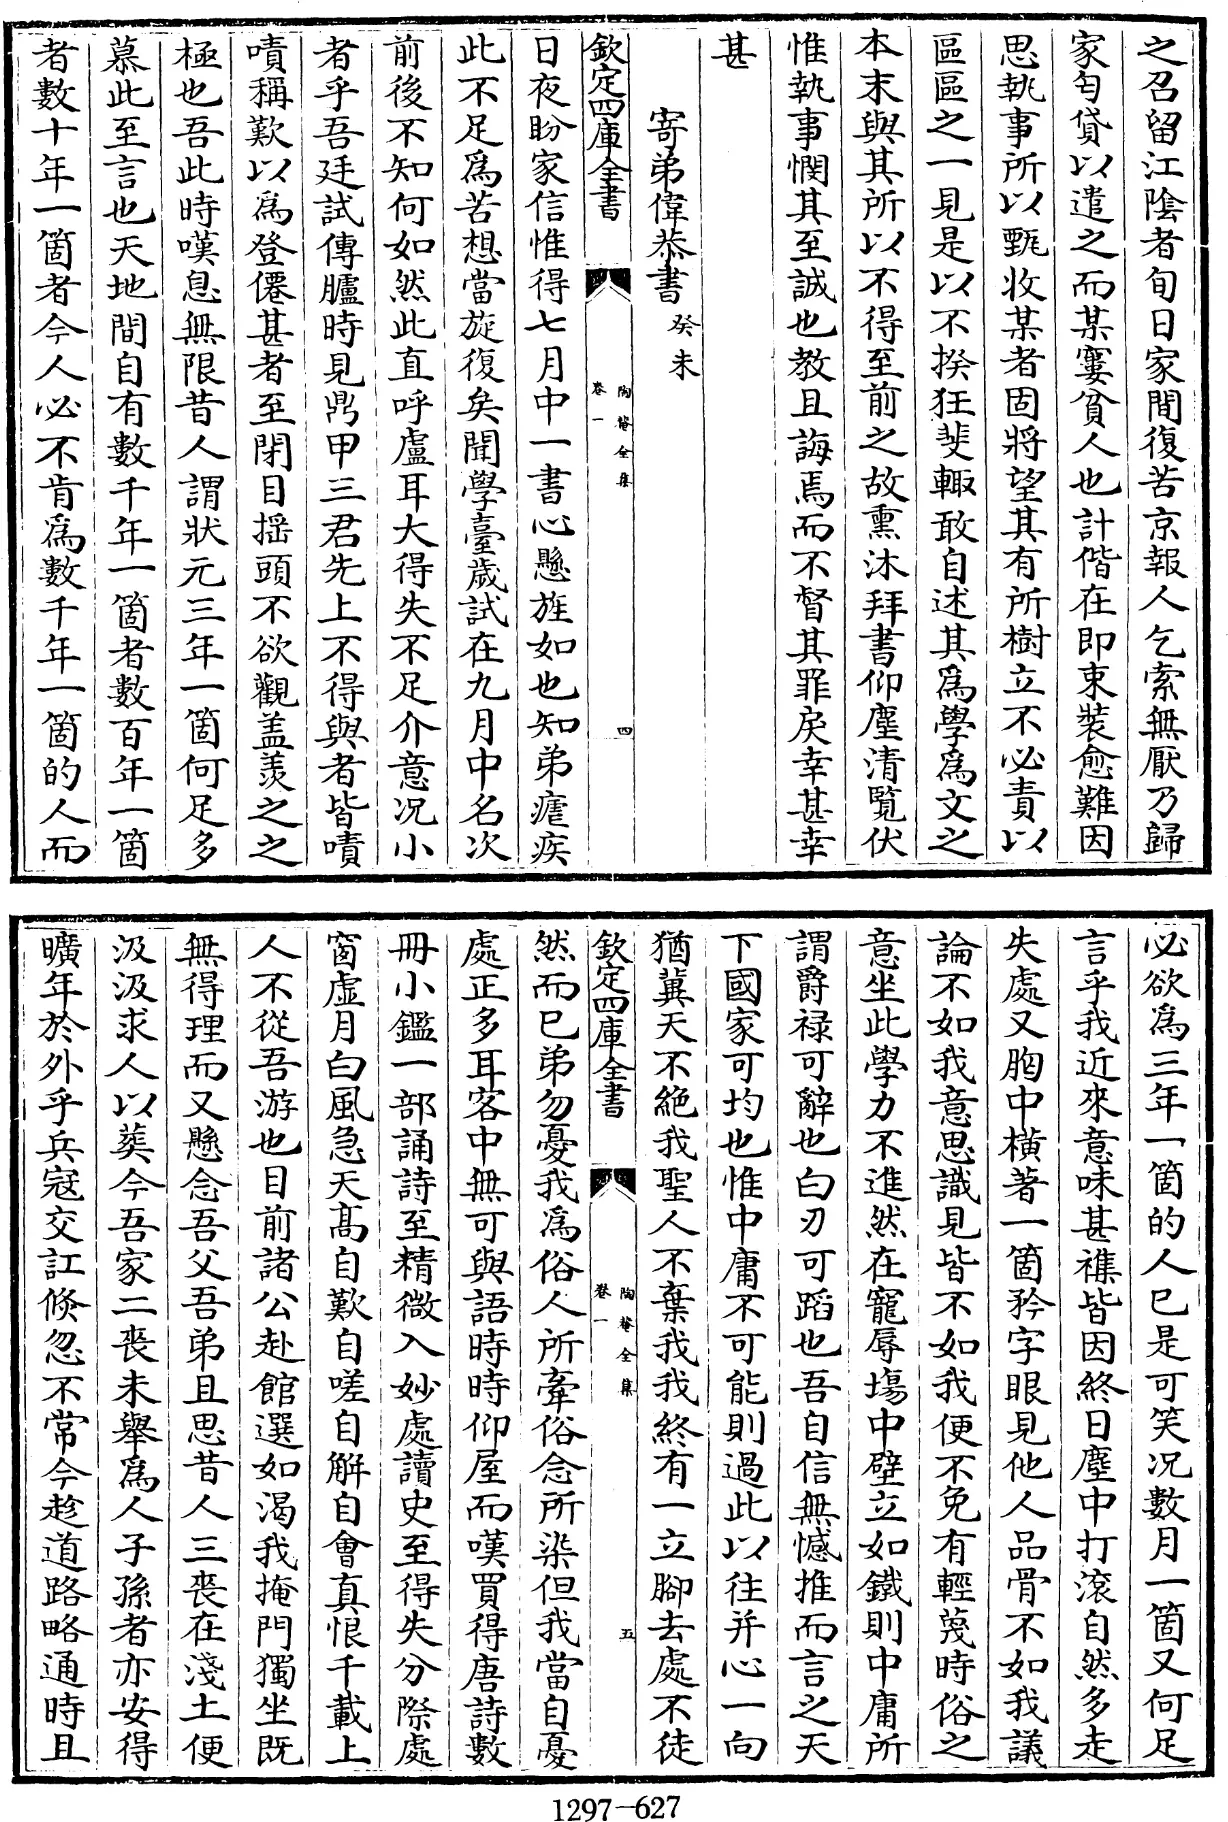 之召留江陰者旬日家間復苦京報人乞索無厭乃歸
家匄貸以遣之而某寠貧人也計偕在即束裝愈難因
思執事所以甄收某者固將望其有所樹立不必責以
區區之一見是以不揆狂斐輙敢自述其為學為文之
本末與其所以不得至前之故熏沐拜書仰塵清覽伏
惟執事憫其至誠也教且誨焉而不督其罪戾幸甚幸
甚
寄弟偉恭書癸未
欽定四庫全書 陶菴全集 卷一 四
日夜盼家信惟得七月中一書心懸旌如也知弟瘧疾
此不足為苦想當旋復矣聞學臺歲試在九月中名次
前後不知何如然此直呼盧耳大得失不足介意况小
者乎吾廷試傳臚時見鼎甲三君先上不得與者皆嘖
嘖稱歎以為登僊甚者至閉目揺頭不欲觀盖羡之之
極也吾此時嘆息無限昔人謂狀元三年一箇何足多
慕此至言也天地間自有數千年一箇者數百年一箇
者數十年一箇者今人必不肯為數千年一箇的人而
必欲為三年一箇的人已是可笑况數月一箇又何足
言乎我近來意味甚襍皆因終日塵中打滚自然多走
失處又胸中橫著一箇矜字眼見他人品骨不如我議
論不如我意思識見皆不如我便不免有輕蔑時俗之
意坐此學力不進然在寵辱塲中壁立如鐵則中庸所
謂爵禄可辭也白刃可蹈也吾自信無憾推而言之天
下國家可均也惟中庸不可能則過此以往并心一向
猶冀天不絶我聖人不棄我我終有一立腳去處不徒
欽定四庫全書 陶菴全集 卷一 五
然而已弟勿憂我為俗人所牽俗念所染但我當自憂
處正多耳客中無可與語時時仰屋而嘆買得唐詩數
冊小鑑一部誦詩至精微入妙處讀史至得失分際處
窗虚月白風急天髙自歎自嗟自解自會真恨千載上
人不從吾游也目前諸公赴館選如渴我掩門獨坐既
無得理而又懸念吾父吾弟且思昔人三喪在淺土便
汲汲求人以葬今吾家二喪未舉為人子孫者亦安得
曠年於外乎兵冦交訌倐忽不常今趁道路略通時且
1297-627